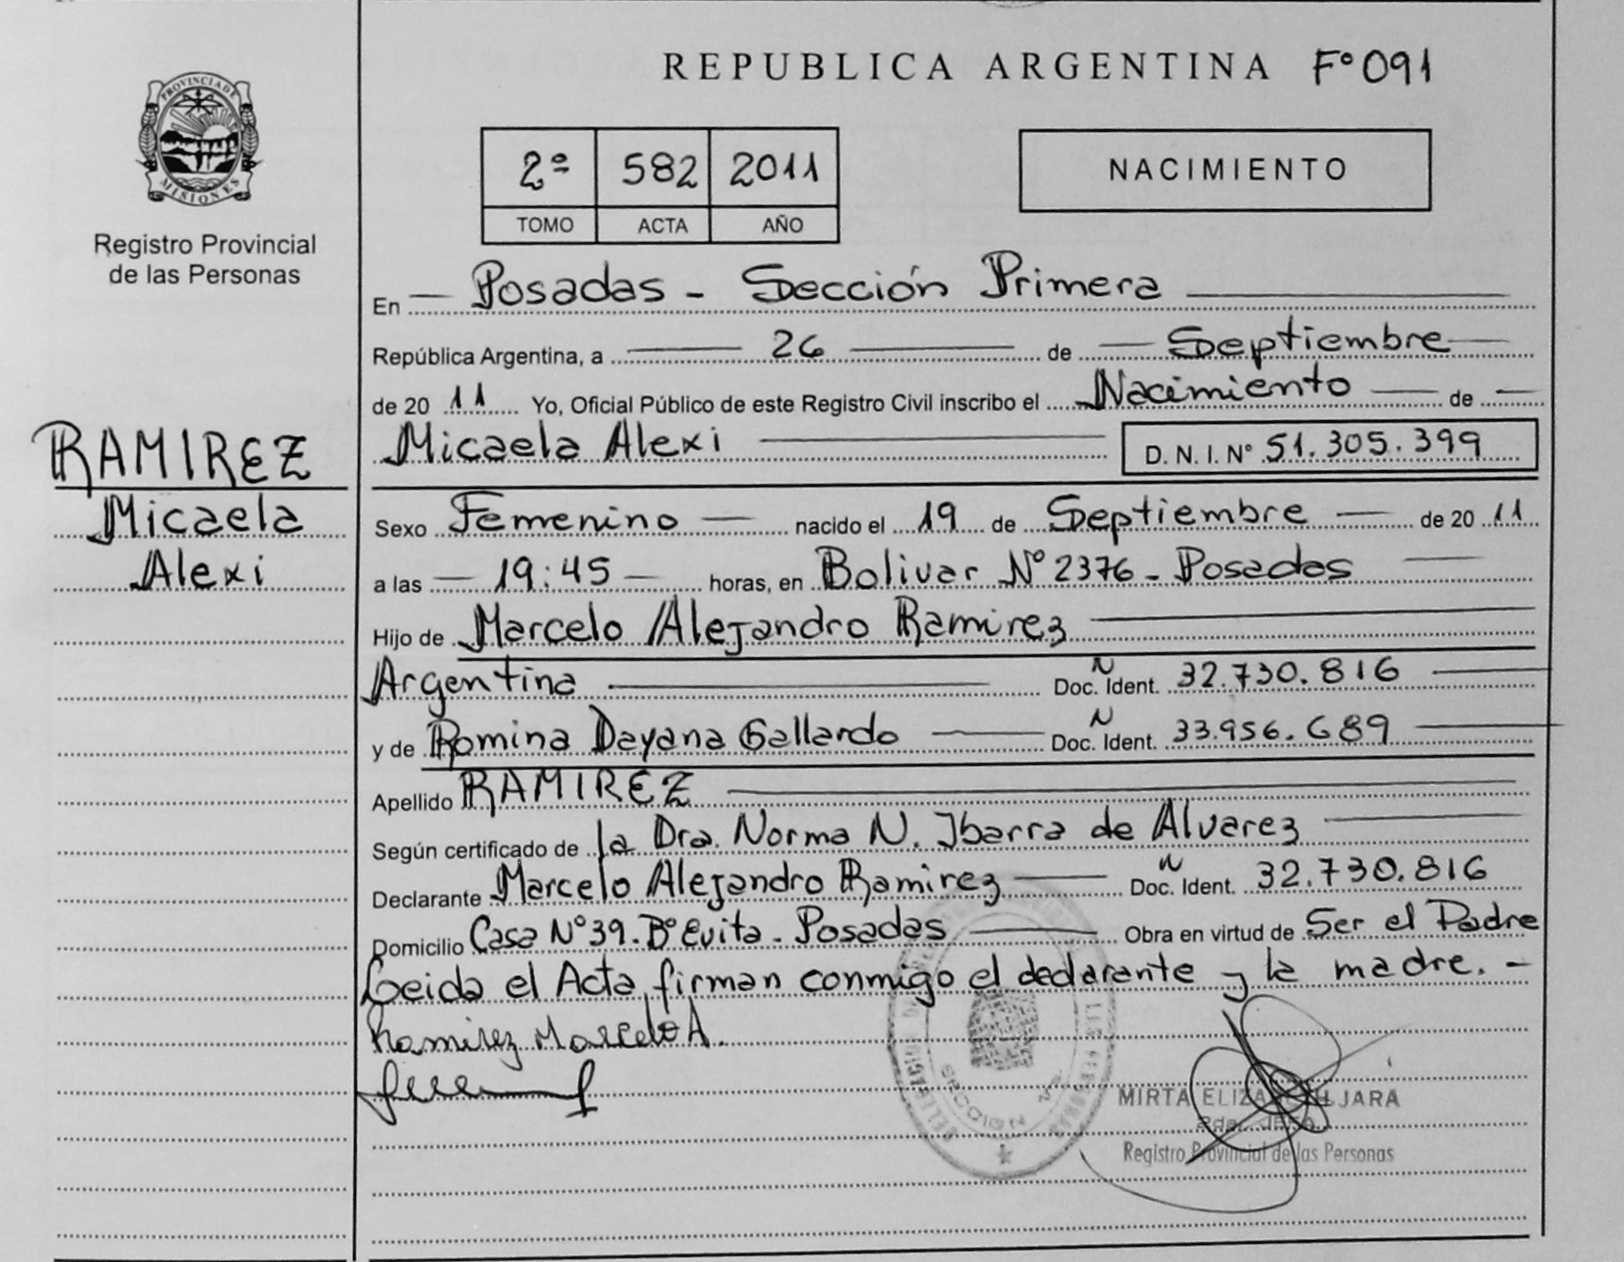 REPUBLICA ARGENTINA Fº 091
PROVINCIA DE
MISIONES
Registro Provincial
de las Personas
2º 582 2011
TOMO ACTA AÑO
NACIMIENTO
En Posadas - Sección Primera
República Argentina, a 26 de Septiembre
de 20 11 Yo, Oficial Público de este Registro Civil inscribo el Nacimiento de
Micaela Alexi D. N. I. Nº 51.305.399
RAMIREZ
Micaela
Alexi
Sexo Femenino nacido el 19 de Septiembre de 20 11
a las 19:45 horas, en Bolivar Nº 2376 - Posadas
Hijo de Marcelo Alejandro Ramirez
Argentina Doc. N Ident. 32.730.816
y de Romina Dayana Gallardo Doc. N Ident. 33.956.689
Apellido RAMIREZ
Según certificado de la Dra. Norma N. Ibarra de Alvarez
Declarante Marcelo Alejandro Ramirez Doc. N Ident. 32.730.816
Domicilio Casa Nº 39. Bº Evita - Posadas Obra en virtud de Ser el Padre
Leida el Acta, firman conmigo el declarante y la madre. -
Ramirez Marcelo A.
SECCION
MIRTA JARA
Registro Provincial de las Personas